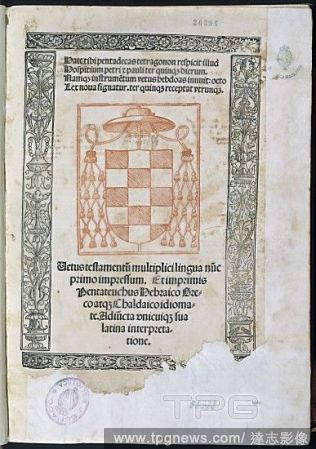 26385
Haec tibi pentadecas tetragonon respicit illud
Hospitium petri z pauli ter quinqz dierum.
Namqz instrumētum vetus hebdoas innuit: octo
Lex noua signatur. ter quinqz receptat vtrunqz.
Uetus testamentū multiplici lingua nūc
primo impressum. Et imprimis
Pentateuchus Hebraico Gre-
co atqz Chaldaico idioma-
te. Adiūcta vnicuiqz sua
latina interpreta-
tione.
TPG
www.tpgnews.com/ 達志影像